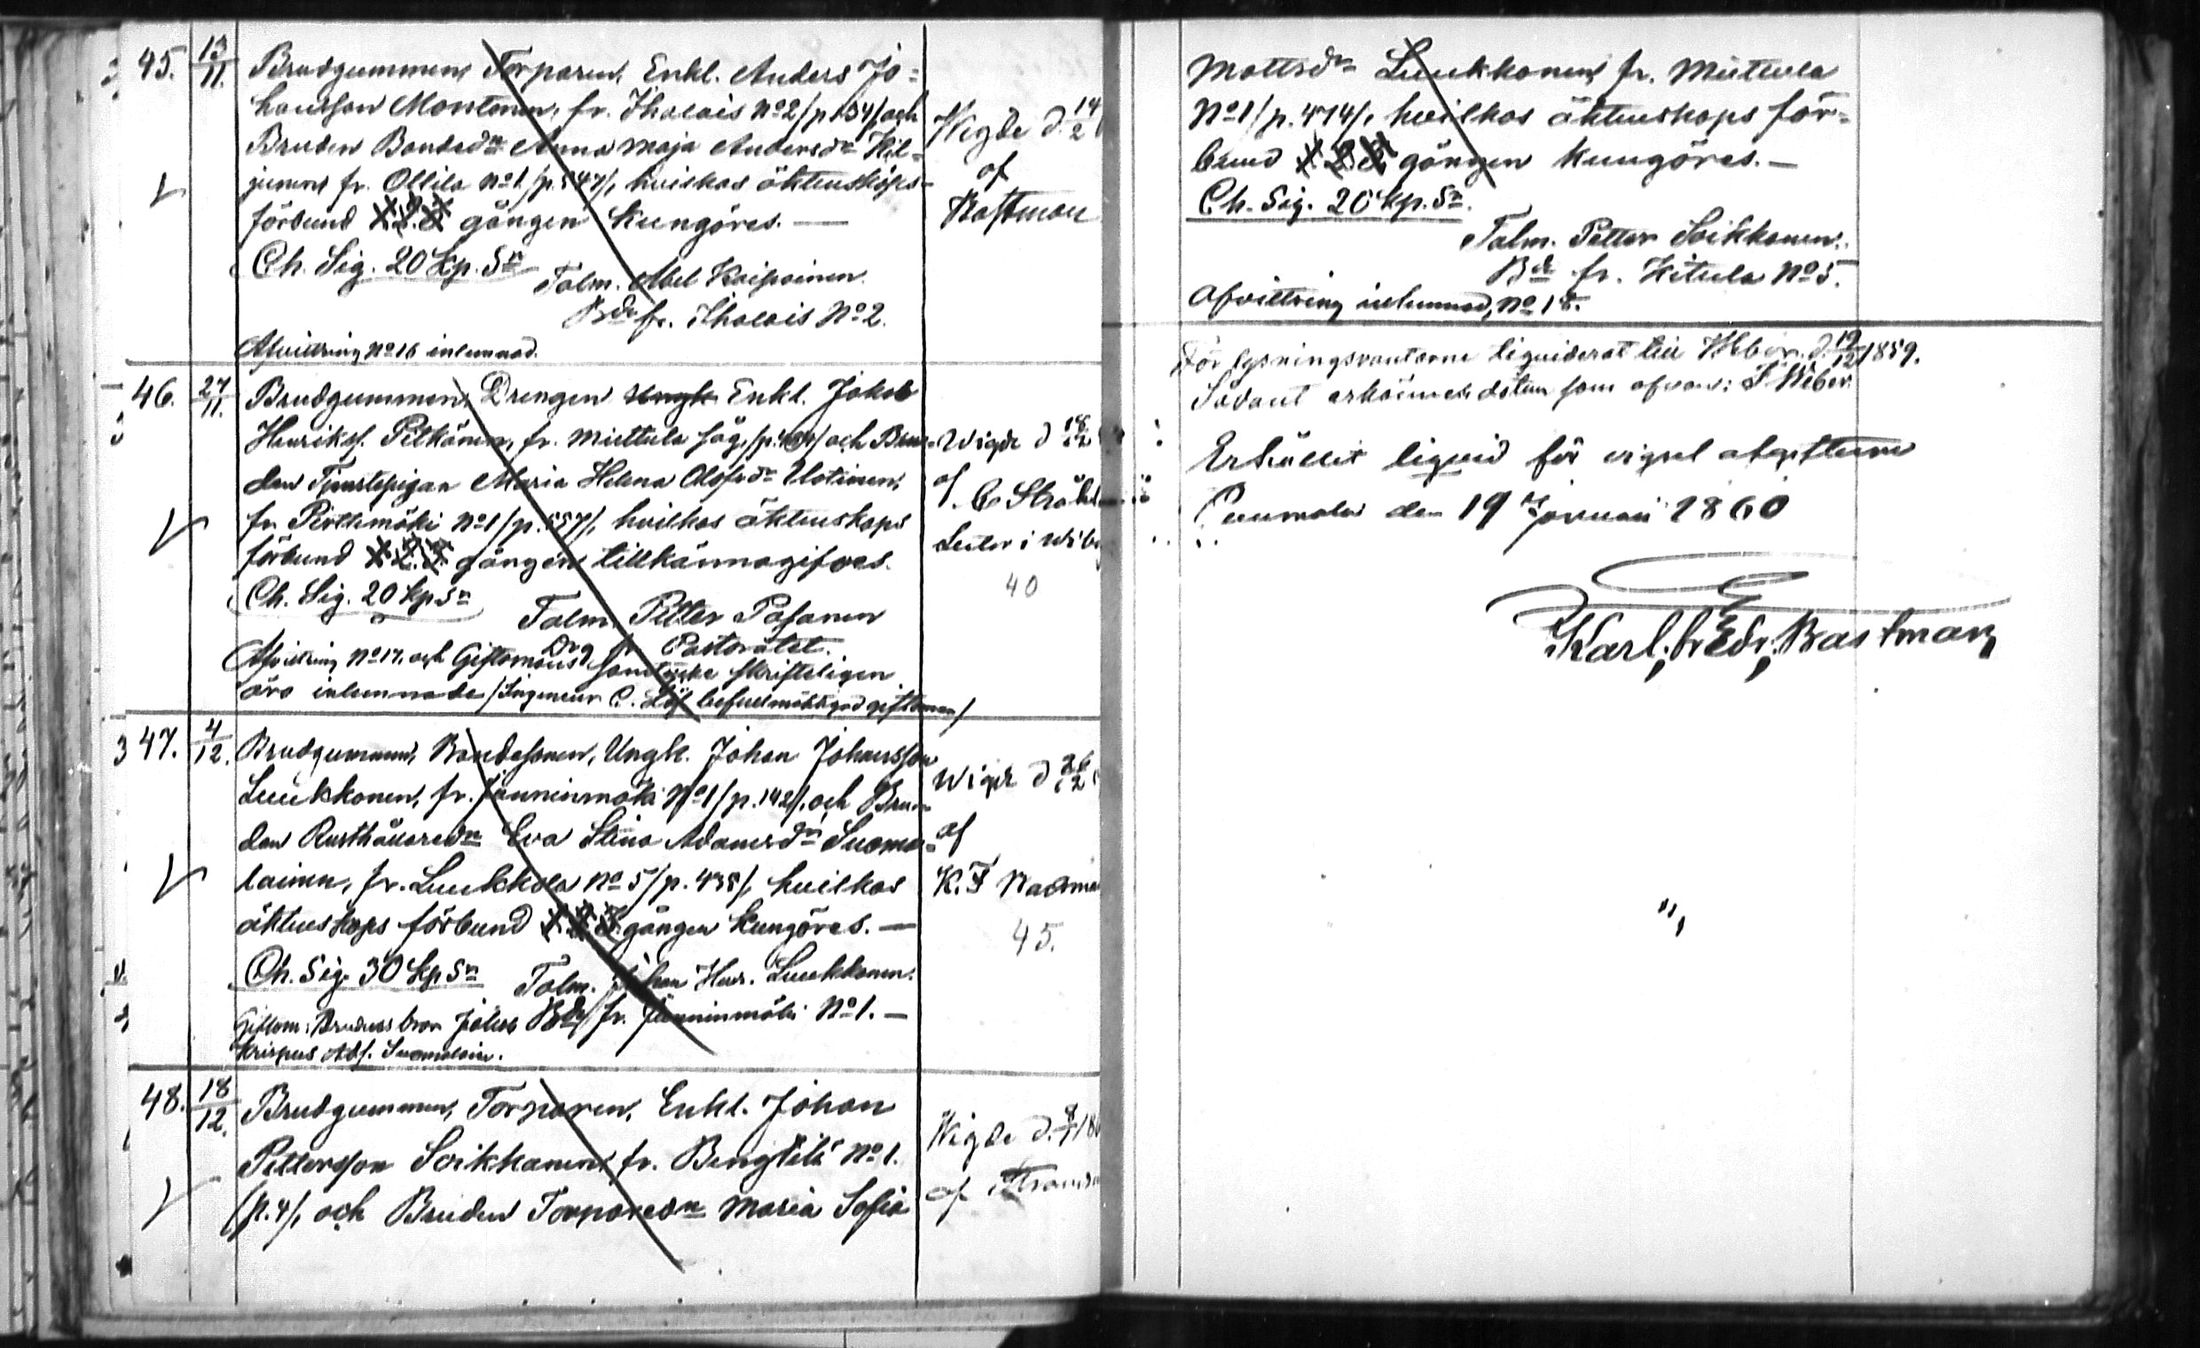 45. 13/11. Brudgummen, Torparen, Enkl. Anders Jo=
hansson Montonen, fr. Ihalais No 2 /p. 154/ och
Bruden Bondedn Anna Maja Andersdr Hil=
junen fr. Ollila No 1 /p. 547/, hvilkas äktenskaps=
förbund 1. 2. 3. gången kungöres. —
Ch. Sig. 20 kp. Sr
Talm. Abel Kaipainen
Bde fr. Ihalais No 2.
Afvittring No 16 inlemnad.
Wigde d. 14/12
af
Bastman
46. 27/11. Brudgummen, Drengen Ungk. Enkl. Jakob
Henrikss. Pitkänen, fr. Miettula säg, /p. / och Bru=
den Tjenstepigan Maria Helena Olofsdr Ulotinen,
fr. Pirttimäki No 1 /p. 557/, hvilkas äktenskaps
förbund 1. 2. 3. gången tillkännagifves.
Ch. Sig. 20 kp Sr
Talm. Petter Pasanen
Drg fr. Pastoratet.
Afvittring No 17. och Giftomans samtycke skrifteligen
äro inlemnade /Ingenieur C. Löf befuelmäktigad giftoman/
Wigde d 18/12
af C Stråhl
Lector i Wib
40
47. 4/12. Brudgummen, Bondesonen, Ungk. Johan Johansson
Luukkonen, fr. Jänninmäki No 1 /p. 142/, och Bru=
den Rusthållaredn Eva Stina Adamsdr Suoma=
lainen, fr. Luukkola No 5 /p. 435/, hvilkas
äktenskaps förbund 1. 2. 3. gången kungöres. —
Ch. Sig. 30 kp Sr
Talm. Johan Henr. Luukkonen.
Bde fr. Jänninmäki No 1. —
Giftom: Brudens bror Jakob
Krispus Ads. Suomalain.
Wigde d 26/12
af
K. F Bastma
45.
48. 18/12. Brudgummen, Torparen, Enkl. Johan
Pettersson Soikkanen, fr. Bengtilä No 1.
/p. 4/, och Bruden Torparedn Maria Sofia
Wigde d. 8/1 18
af
Mattsdr Luukkonen, fr. Miettula
No 1 /p. 474/, hvilkas äktenskaps för=
bund 1. 2. 3. gången kungöres. —
Ch. Sig. 20 kp. Sr.
Talm. Petter Soikkanen.
Bde fr. Kitula No 5.
Afvittring inlemnad, No 18.
För lysningsvantarne liquiderat till Weber. d. 19/12 1859.
Sådant erkännes datum som ofvan: Weber.
Erhållit liqvid för vigsel afgifterne
Puumala den 19 Januari 1860
Karl. Fredr. Bastman